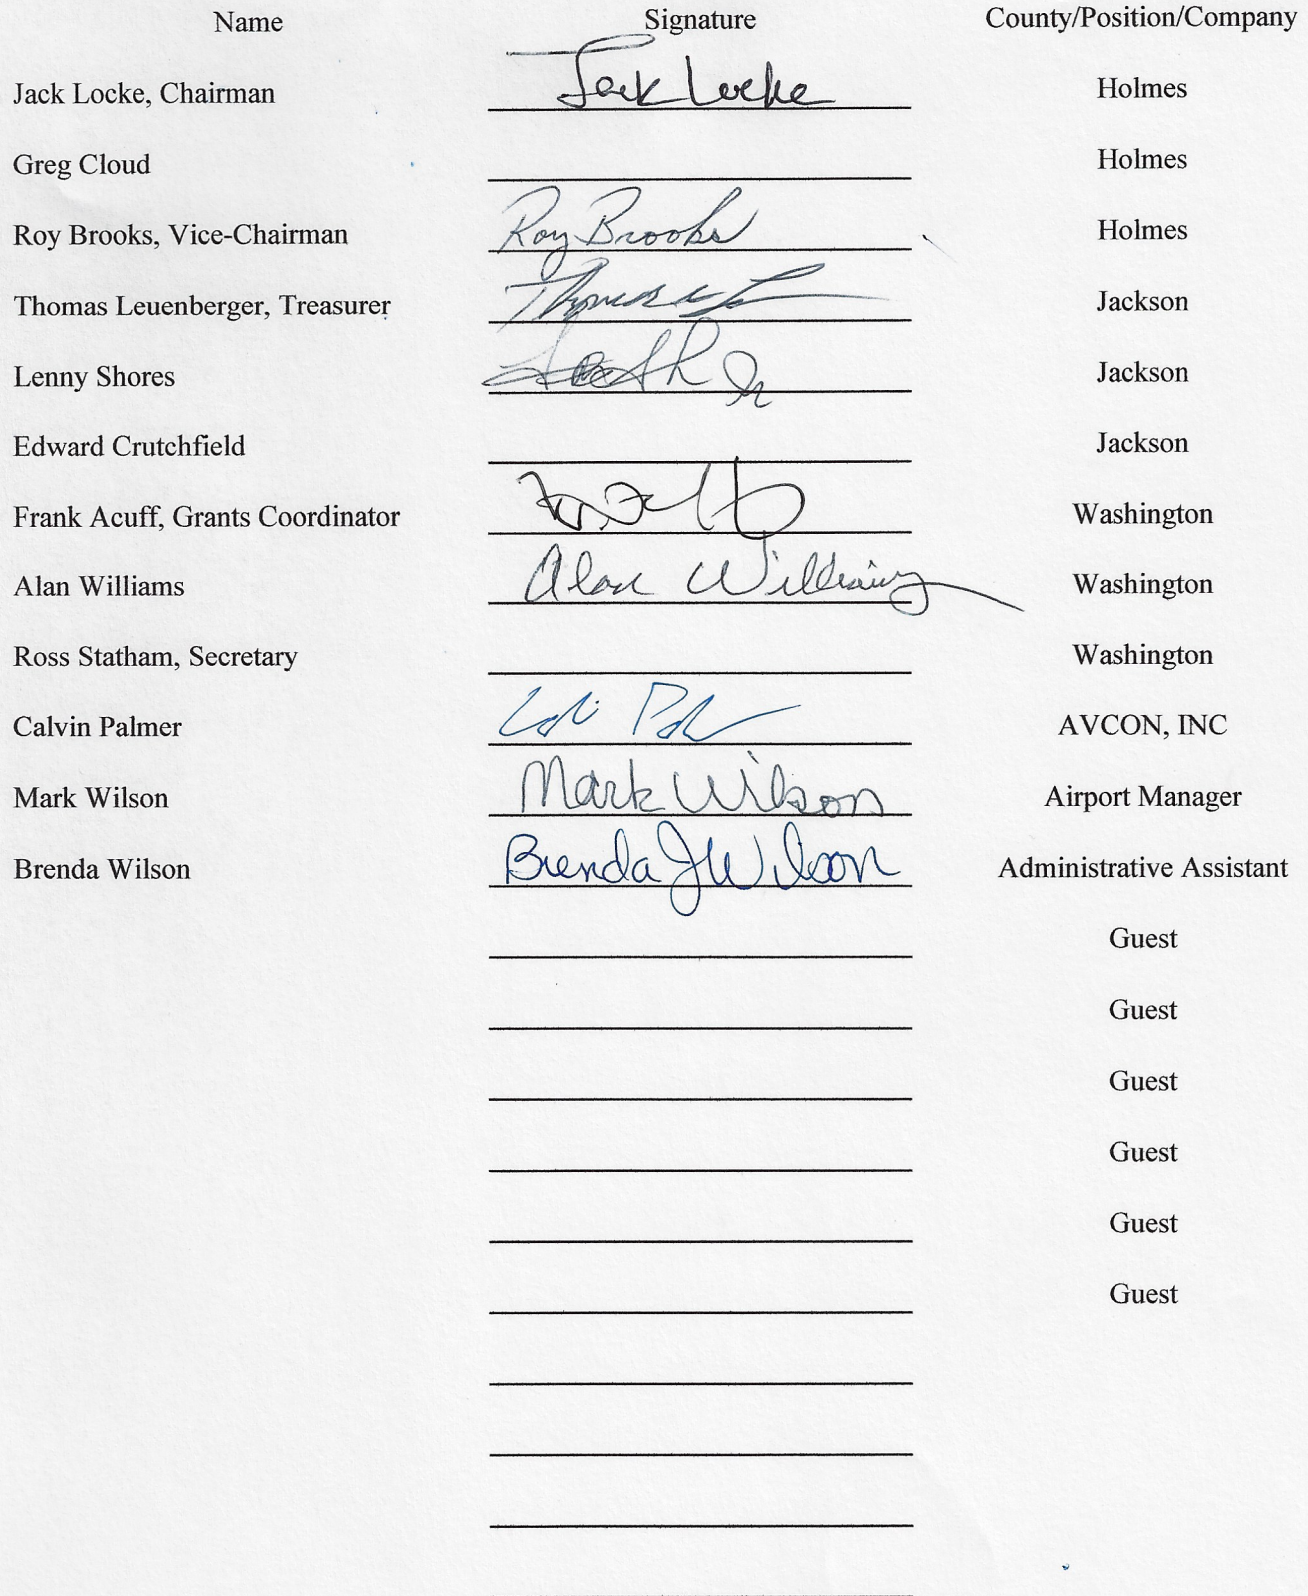 Name Signature County/Position/Company
Jack Locke, Chairman Jack Locke Holmes
Greg Cloud Holmes
Roy Brooks, Vice-Chairman Roy Brooks Holmes
Thomas Leuenberger, Treasurer Jackson
Lenny Shores Jackson
Edward Crutchfield Jackson
Frank Acuff, Grants Coordinator Washington
Alan Williams Alan Williams Washington
Ross Statham, Secretary Washington
Calvin Palmer AVCON, INC
Mark Wilson Mark Wilson Airport Manager
Brenda Wilson Brenda J Wilson Administrative Assistant
Guest
Guest
Guest
Guest
Guest
Guest